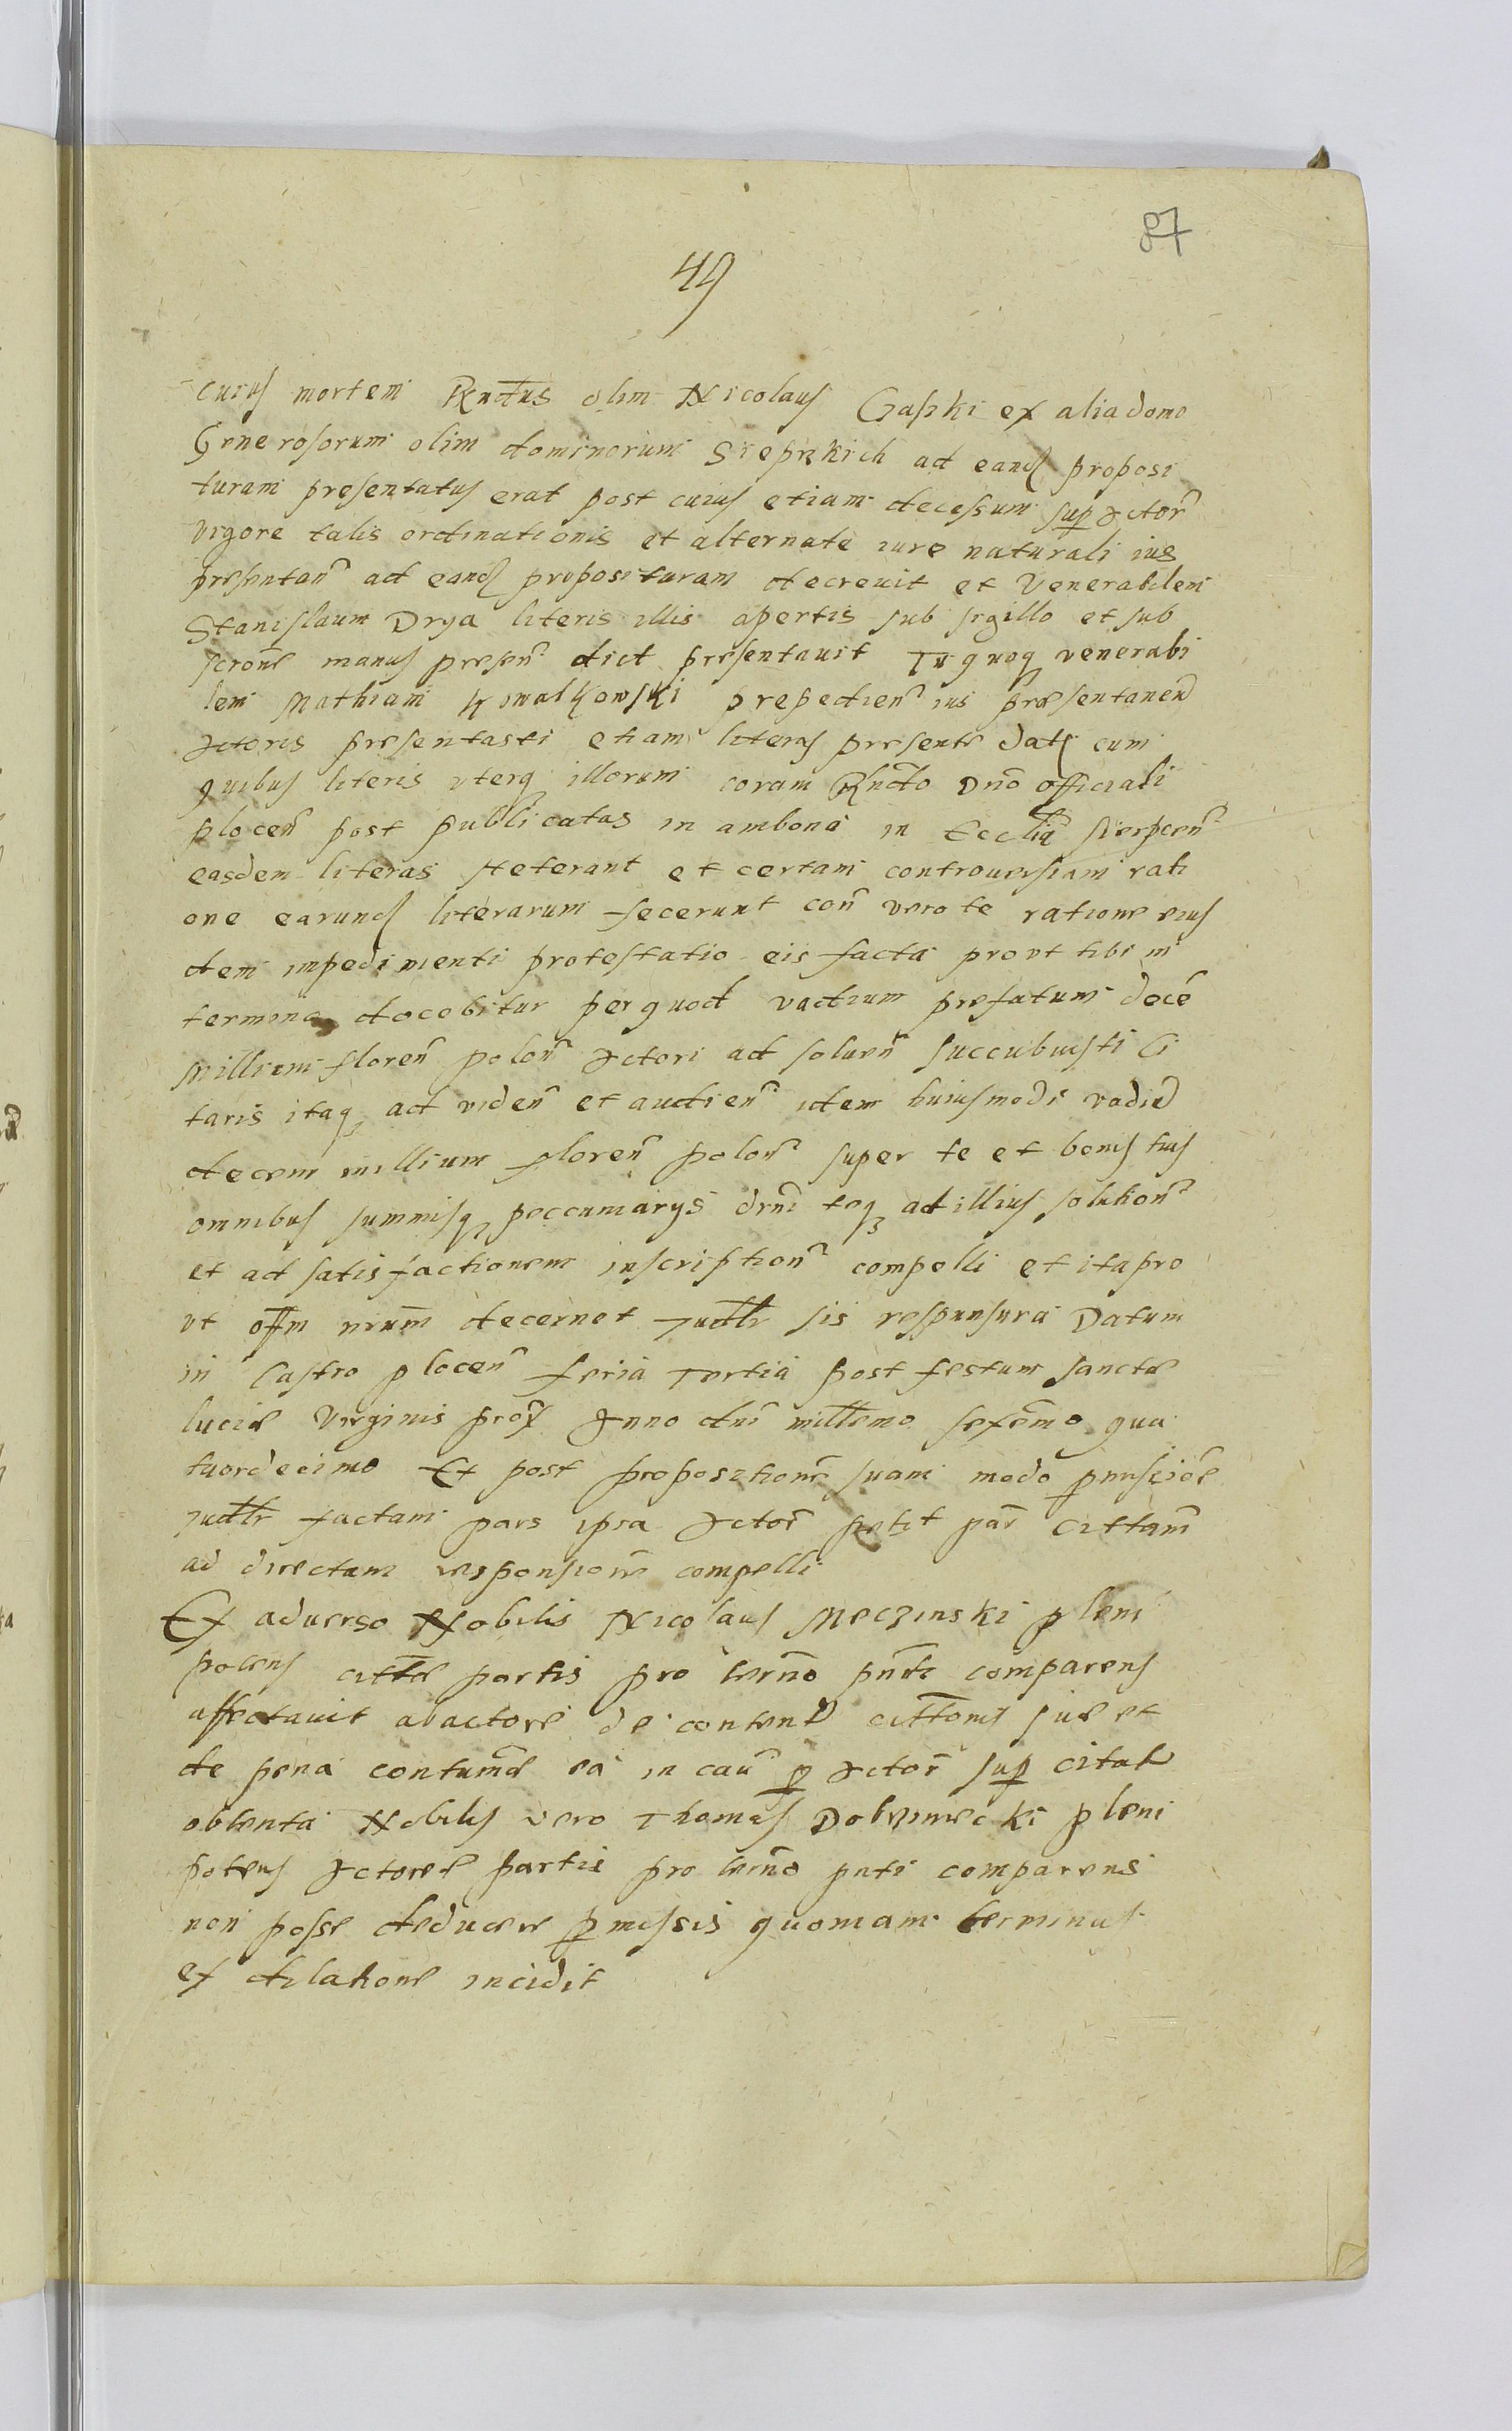 87
49
cuius mortem Rndus olim Nicolaus Gaski ex alia domo
Generosorum olim dominorum Sieprskich ad eand proposi
turam presentatus erat post cuius etiam decessum sup Actor
vigore talis ordinationis et alternate iure naturali ius
presentan ad eand proposituram decreuit et Venerabilem
Stanislaum Drya literis illis apertis sub sigillo et sub
scrone manus presen dict presentauit Tu quoq venerabi
lem Mathiam Kowalkowski prepedien ius presentanen
Actoris presentasti etiam literas presente dats cum
quibus literis vterq illorum coram Rndo Dno officiali
plocen post publicatas in ambona in Ecclia Sierpcen
easdem literas steterant et certam controuersiam rati
one earund literarum fecerunt con vero te ratione eius
dem impedimenti protestatio eis facta prout tibi in
termino docebitur per quod vadium prefatum dece
Millium floren polon Actori ad soluen succubuisti Ci
taris itaq ad viden et audien idem huiusmodi vadiu
decem millium floren polon super te et bonis tuis
omnibus summisq peccuniarys drni teq ad illius solution
et ad satisfactionem inscription compelli et ita pro
vt offm nrum decernet Judtr sis responsura Datum
in Castro plocen feria Tertia post festum sancte
lucie Virginis prox Anno dni millemo sexcemo qua
tuordecimo Et post propositione suam modo
judtr factam pars ipsa Actor petit par cittam
ad directam responsione compelli
Ex aduerso Nobilis Nicolaus Meczinski pleni
potens citte partis pro termo pnti comparens
affectauit ab actore de content cittonis sue et
de pena contuma ea in cau p Actor sup citat
obtenta Nobilis vero Thomas pleni
potens Actoree partis pro termo pnti comparens
non posse deducere pmissis quoniam terminus
ex dilatione incidit